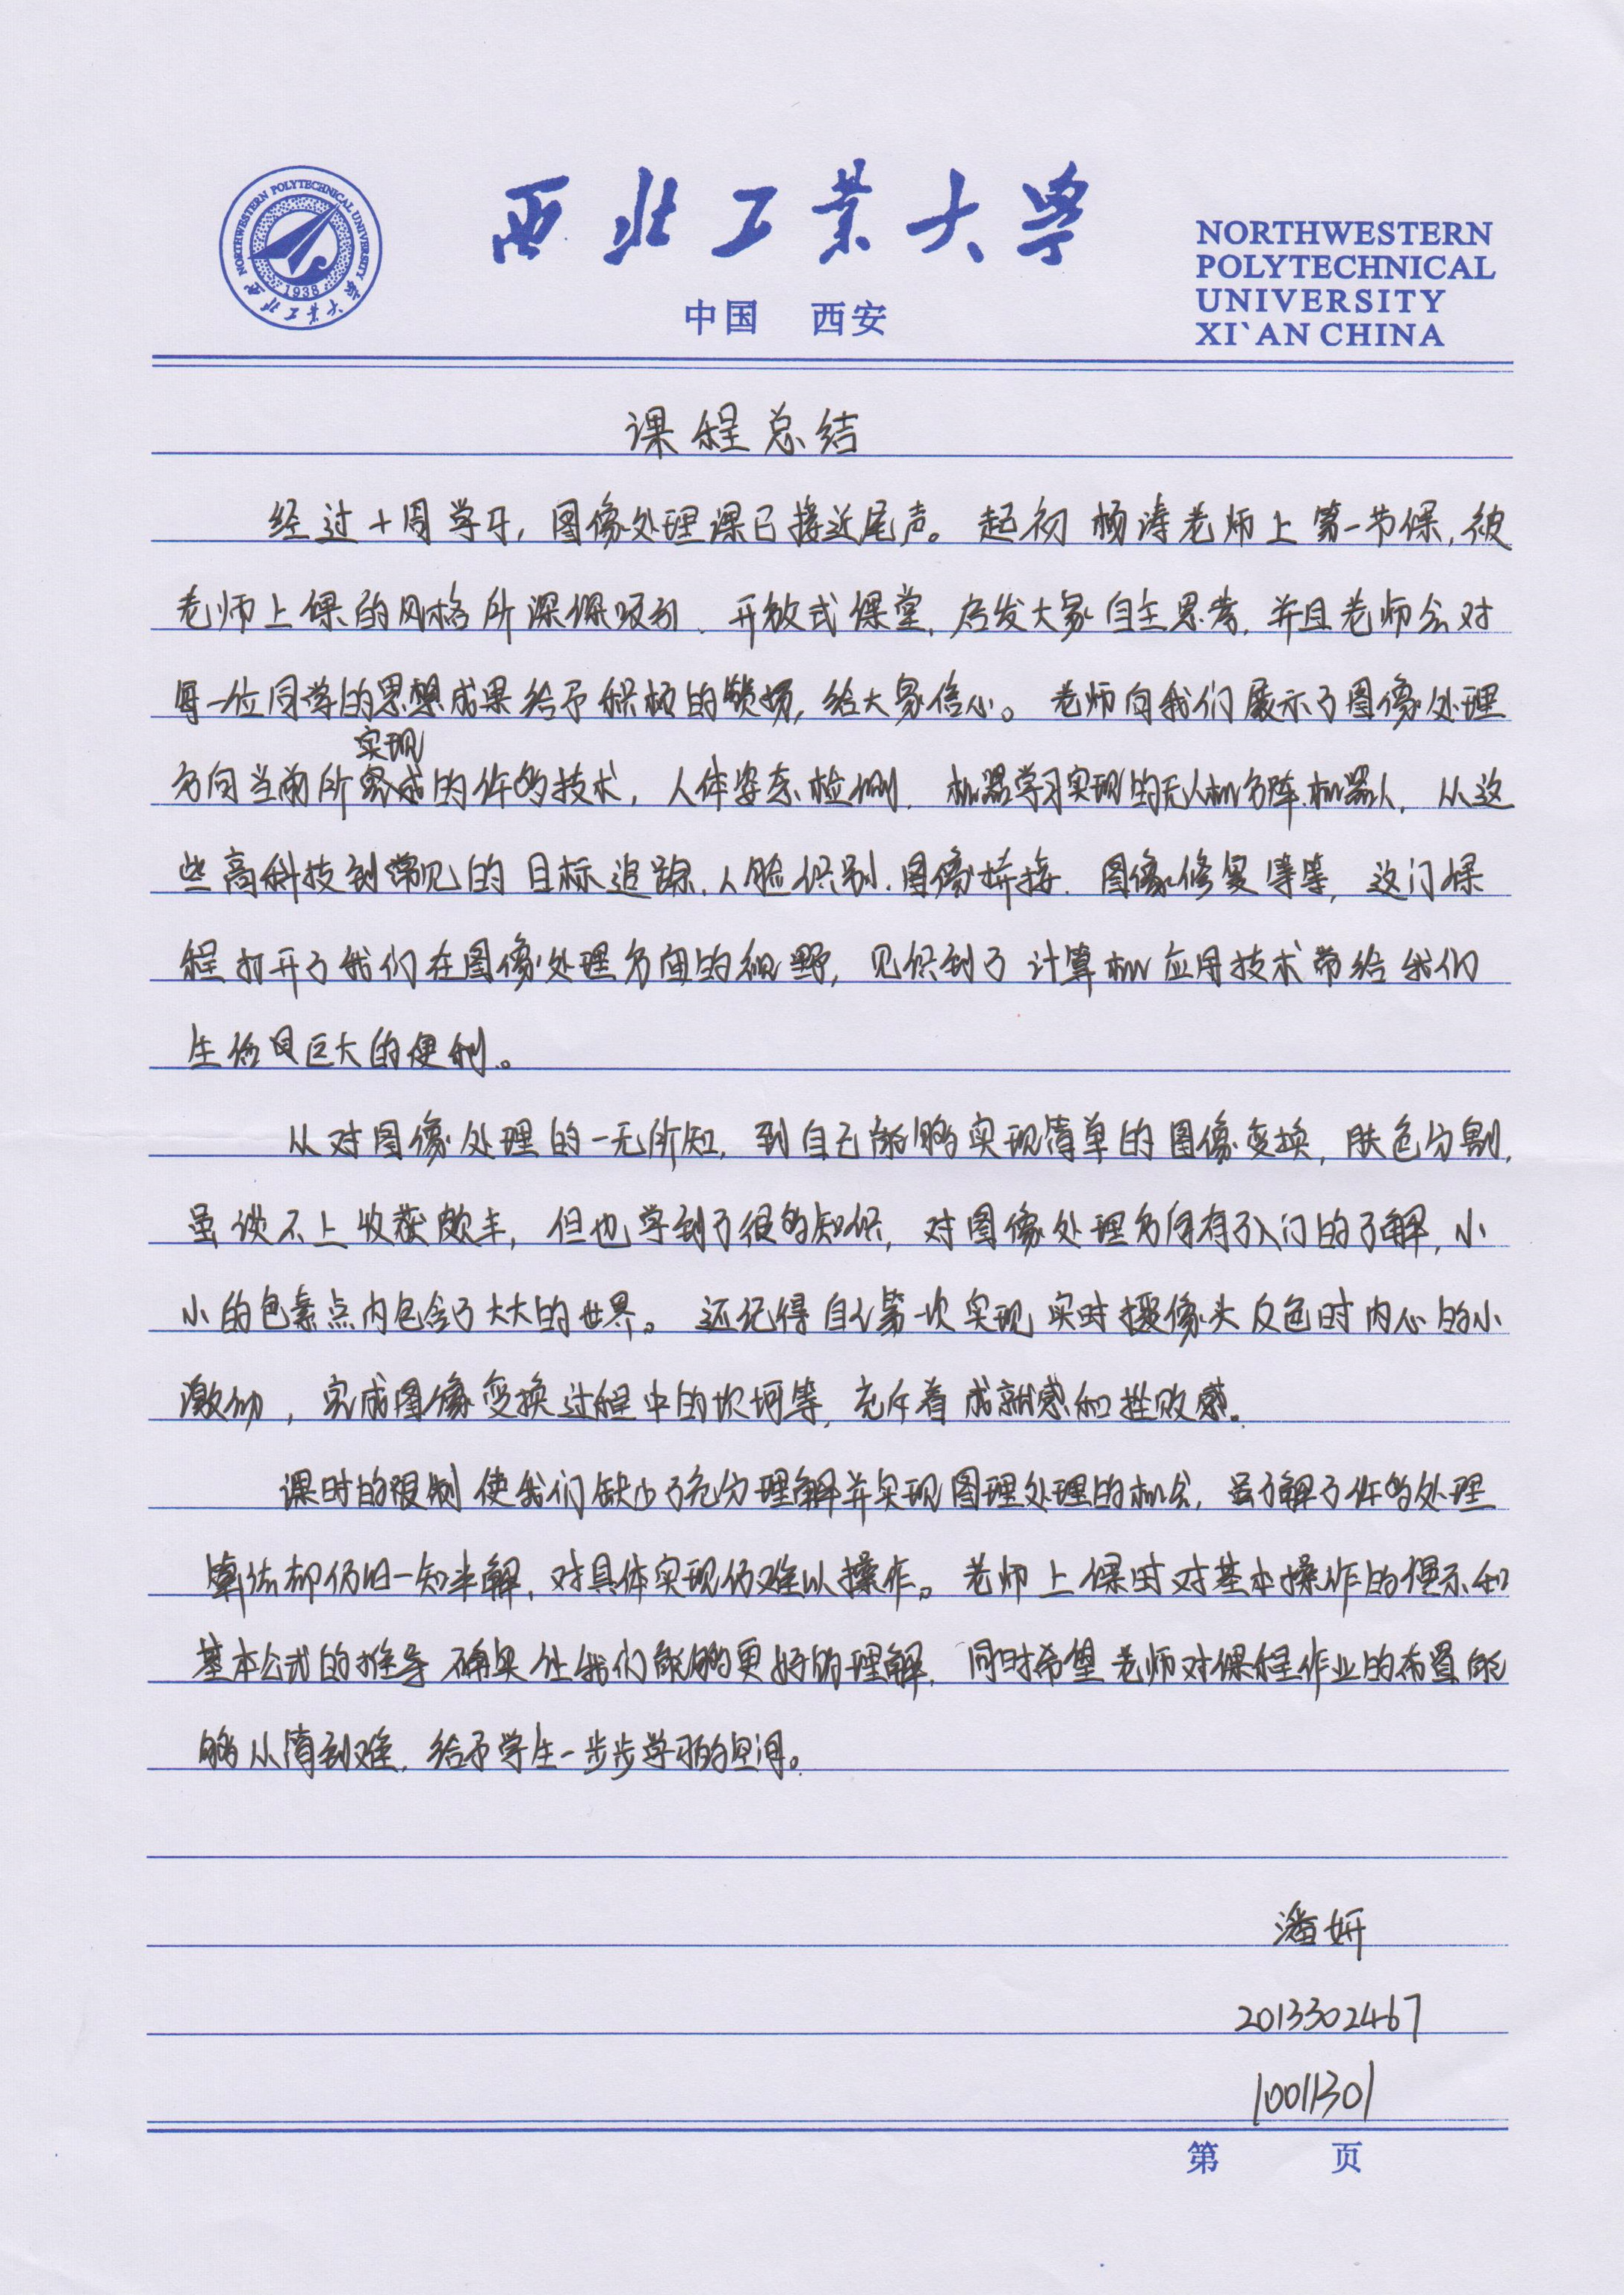 西北工业大学
中国 西安
NORTHWESTERN
POLYTECHNICAL
UNIVERSITY
XI`AN CHINA
NORTHWESTERN POLYTECHNICAL UNIVERSITY
1938
西北工业大学
课程总结
经过十周学习,图像处理课已接近尾声。起初杨涛老师上第一节课,被
老师上课的风格所深深吸引、开放式课堂,启发大家自主思考,并且老师会对
每一位同学的思想成果给予积极的赞扬,给大家信心。老师向我们展示了图像处理
实现
方向当前所的许多技术,人体姿态检测、机器学习实现的无人机方阵、机器人,从这
些高科技到常见的目标追踪、人脸识别、图像拼接、图像修复等等,这门课
程打开了我们在图像处理方面的视野,见识到了计算机应用技术带给我们
生活巨大的便利。
从对图像处理的一无所知,到自己能够实现简单的图像变换,肤色分割,
虽谈不上收获颇丰,但也学到了很多知识,对图像处理方向有了入门的了解,小
小的色素点内包含了大大的世界。还记得自己第一次实现实时摄像头反色时内心的小
激动,完成图像变换过程中的坎坷等,充斥着成就感和挫败感。
课时的限制使我们缺少了充分理解并实现图理处理的机会,虽了解了许多处理
算法却仍旧一知半解,对具体实现仍难以操作。老师上课时对基本操作的演示和
基本公式的推导确实让我们能够更好的理解,同时希望老师对课程作业的布置能
够从简到难,给予学生一步步学习的空间。
潘妍
2013302467
10011301
第 页